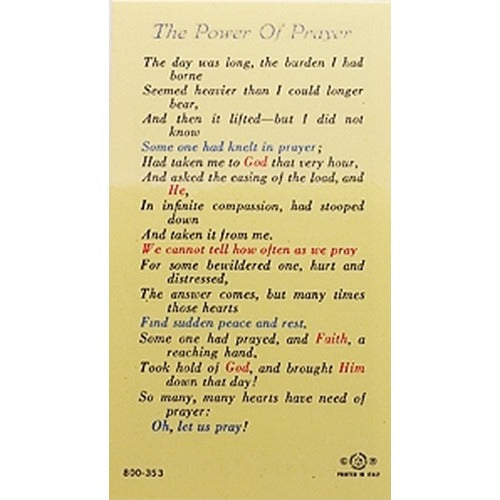 The Power Of Prayer
The day was long, the burden I had
borne
Seemed heavier than I could longer
bear,
And then it lifted—but I did not
know
Some one had knelt in prayer;
Had taken me to God that very hour,
And asked the easing of the load, and
He,
In infinite compassion, had stooped
down
And taken it from me.
We cannot tell how often as we pray
For some bewildered one, hurt and
distressed,
The answer comes, but many times
those hearts
Find sudden peace and rest.
Some one had prayed, and Faith, a
reaching hand,
Took hold of God, and brought Him
down that day!
So many, many hearts have need of
prayer:
Oh, let us pray!
800-353
©
PRINTED IN ITALY